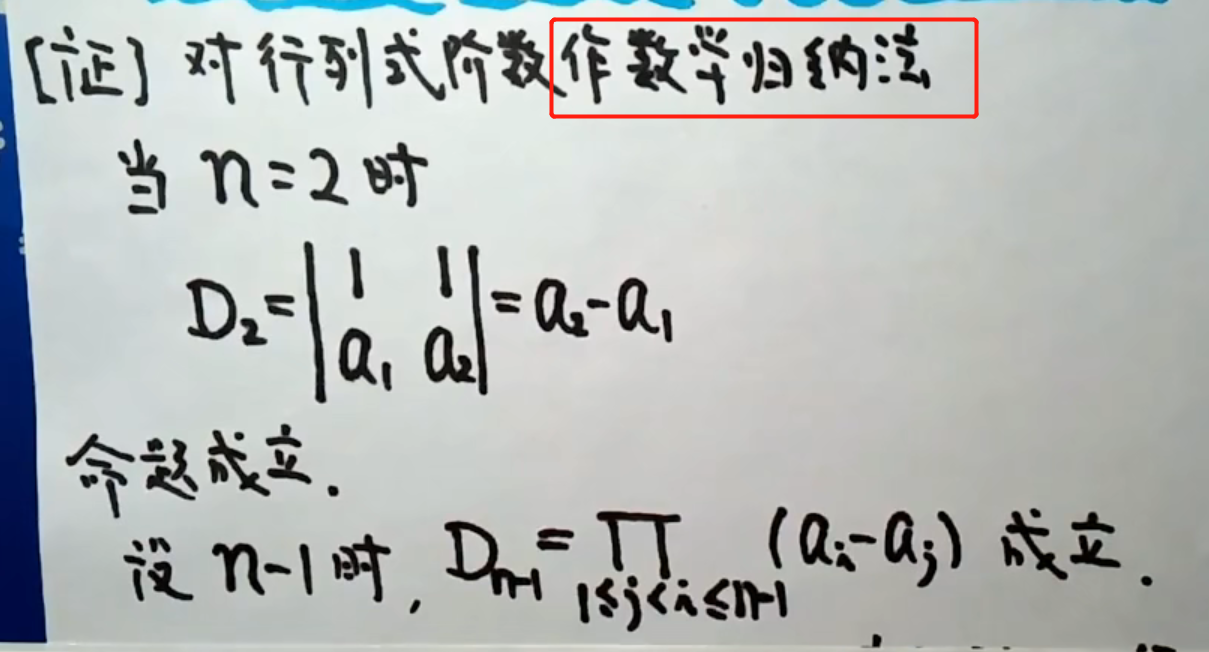 [证] 对行列式阶数作数学归纳法
当 n=2 时
D₂=|1 1; a₁ a₂|=a₂-a₁
命题成立.
设 n-1时, Dₙ₋₁=∏_{1≤j<i≤n-1} (aᵢ-aⱼ) 成立.